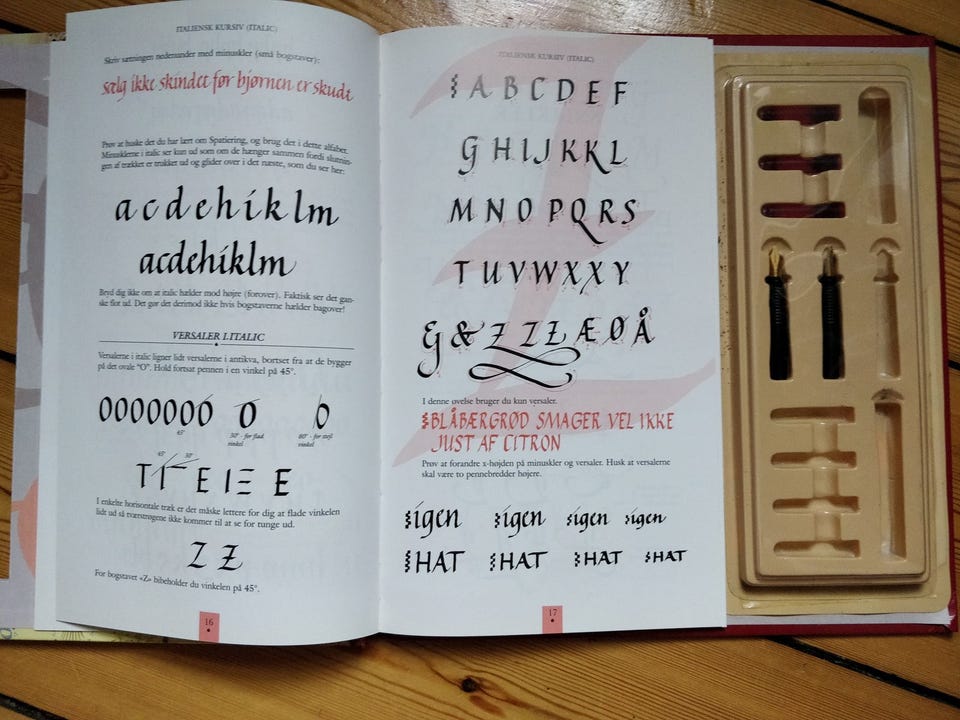 ITALIENSK KURSIV (ITALIC)
Skriv sætningen nedenunder med minuskler (små bogstaver):
sælg ikke skindet før bjørnen er skudt
Prøv at huske det du har lært om Spatiering, og brug det i dette alfabet.
Minusklerne i italic ser kun ud som om de hænger sammen fordi slutnin-
gen af trækket er trukket ud og glider over i det næste, som du ser her:
a c d e h i k l m
acdehiklm
Bryd dig ikke om at italic hælder mod højre (forover). Faktisk ser det gan-
ske flot ud. Det gør det derimod ikke hvis bogstaverne hælder bagover!
VERSALER I ITALIC
Versalerne i italic ligner lidt versalerne i antikva, bortset fra at de bygger
på det ovale "O". Hold fortsat pennen i en vinkel på 45°.
OOOOOOO O O
45° 30° - for flad vinkel 60° - for stejl vinkel
45° 30°
T E E E
I enkelte horisontale træk er det måske lettere for dig at flade vinkelen
lidt ud så tværstregene ikke kommer til at se for tunge ud.
Z Z
For bogstavet «Z» bibeholder du vinkelen på 45°.
16
ITALIENSK KURSIV (ITALIC)
A B C D E F
G H I J K K L
M N O P Q R S
T U V W X X Y
G & Z Z Z Æ Ø Å
I denne øvelse bruger du kun versaler.
BLÅBÆRGRØD SMAGER VEL IKKE
JUST AF CITRON
Prøv at forandre x-højden på minuskler og versaler. Husk at versalerne
skal være to pennebredder højere.
igen igen igen igen
HAT HAT HAT HAT
17